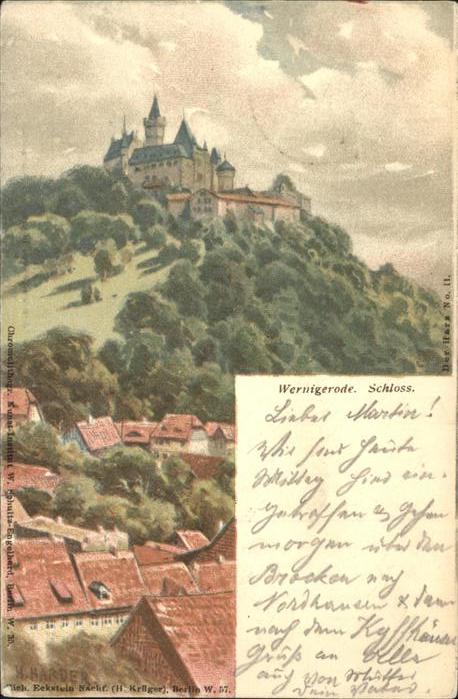 Wernigerode. Schloss.
Der Harz No. 11.
Chromolithogr. Kunst-Institut W. Schultz-Engelhard, Berlin W. 35.
Rich. Eckstein Nachf. (H. Krüger), Berlin W. 57.
Lieber Martin!
Wir sind heute
Mittag hier ein-
getroffen & gehen
morgen über den
Brocken nach
Nordhausen & dann
nach dem Kyffhäuser
Gruß an alle
auch von Mutter
Dein Vater